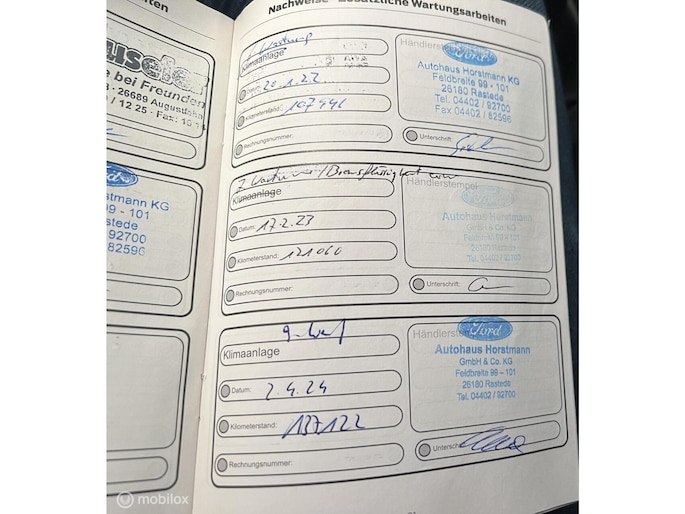 eiten
Nachweise - Zusätzliche Wartungsarbeiten
e bei Freunden
26689 Augustfehn
/ 12 25 · Fax:
Ford
rstmann KG
99 - 101
stede
92700
82596
Wartung
Klimaanlage
Datum: 20.1.22
Kilometerstand: 107446
Rechnungsnummer:
Händlerstempel
Ford
Autohaus Horstmann KG
Feldbreite 99 - 101
26180 Rastede
Tel. 04402 / 92700
Fax 04402 / 82596
Unterschrift:
Klimaanlage
Datum: 17.2.23
Kilometerstand: 121060
Rechnungsnummer:
Händlerstempel
Autohaus Horstmann
GmbH & Co. KG
Feldbreite 99 - 101
26180 Rastede
Tel. 04402 / 92700
Unterschrift:
Klimaanlage
Datum: 2.4.24
Kilometerstand: 137122
Rechnungsnummer:
Händlerstempel
Ford
Autohaus Horstmann
GmbH & Co. KG
Feldbreite 99 - 101
26180 Rastede
Tel. 04402 / 92700
mobilox